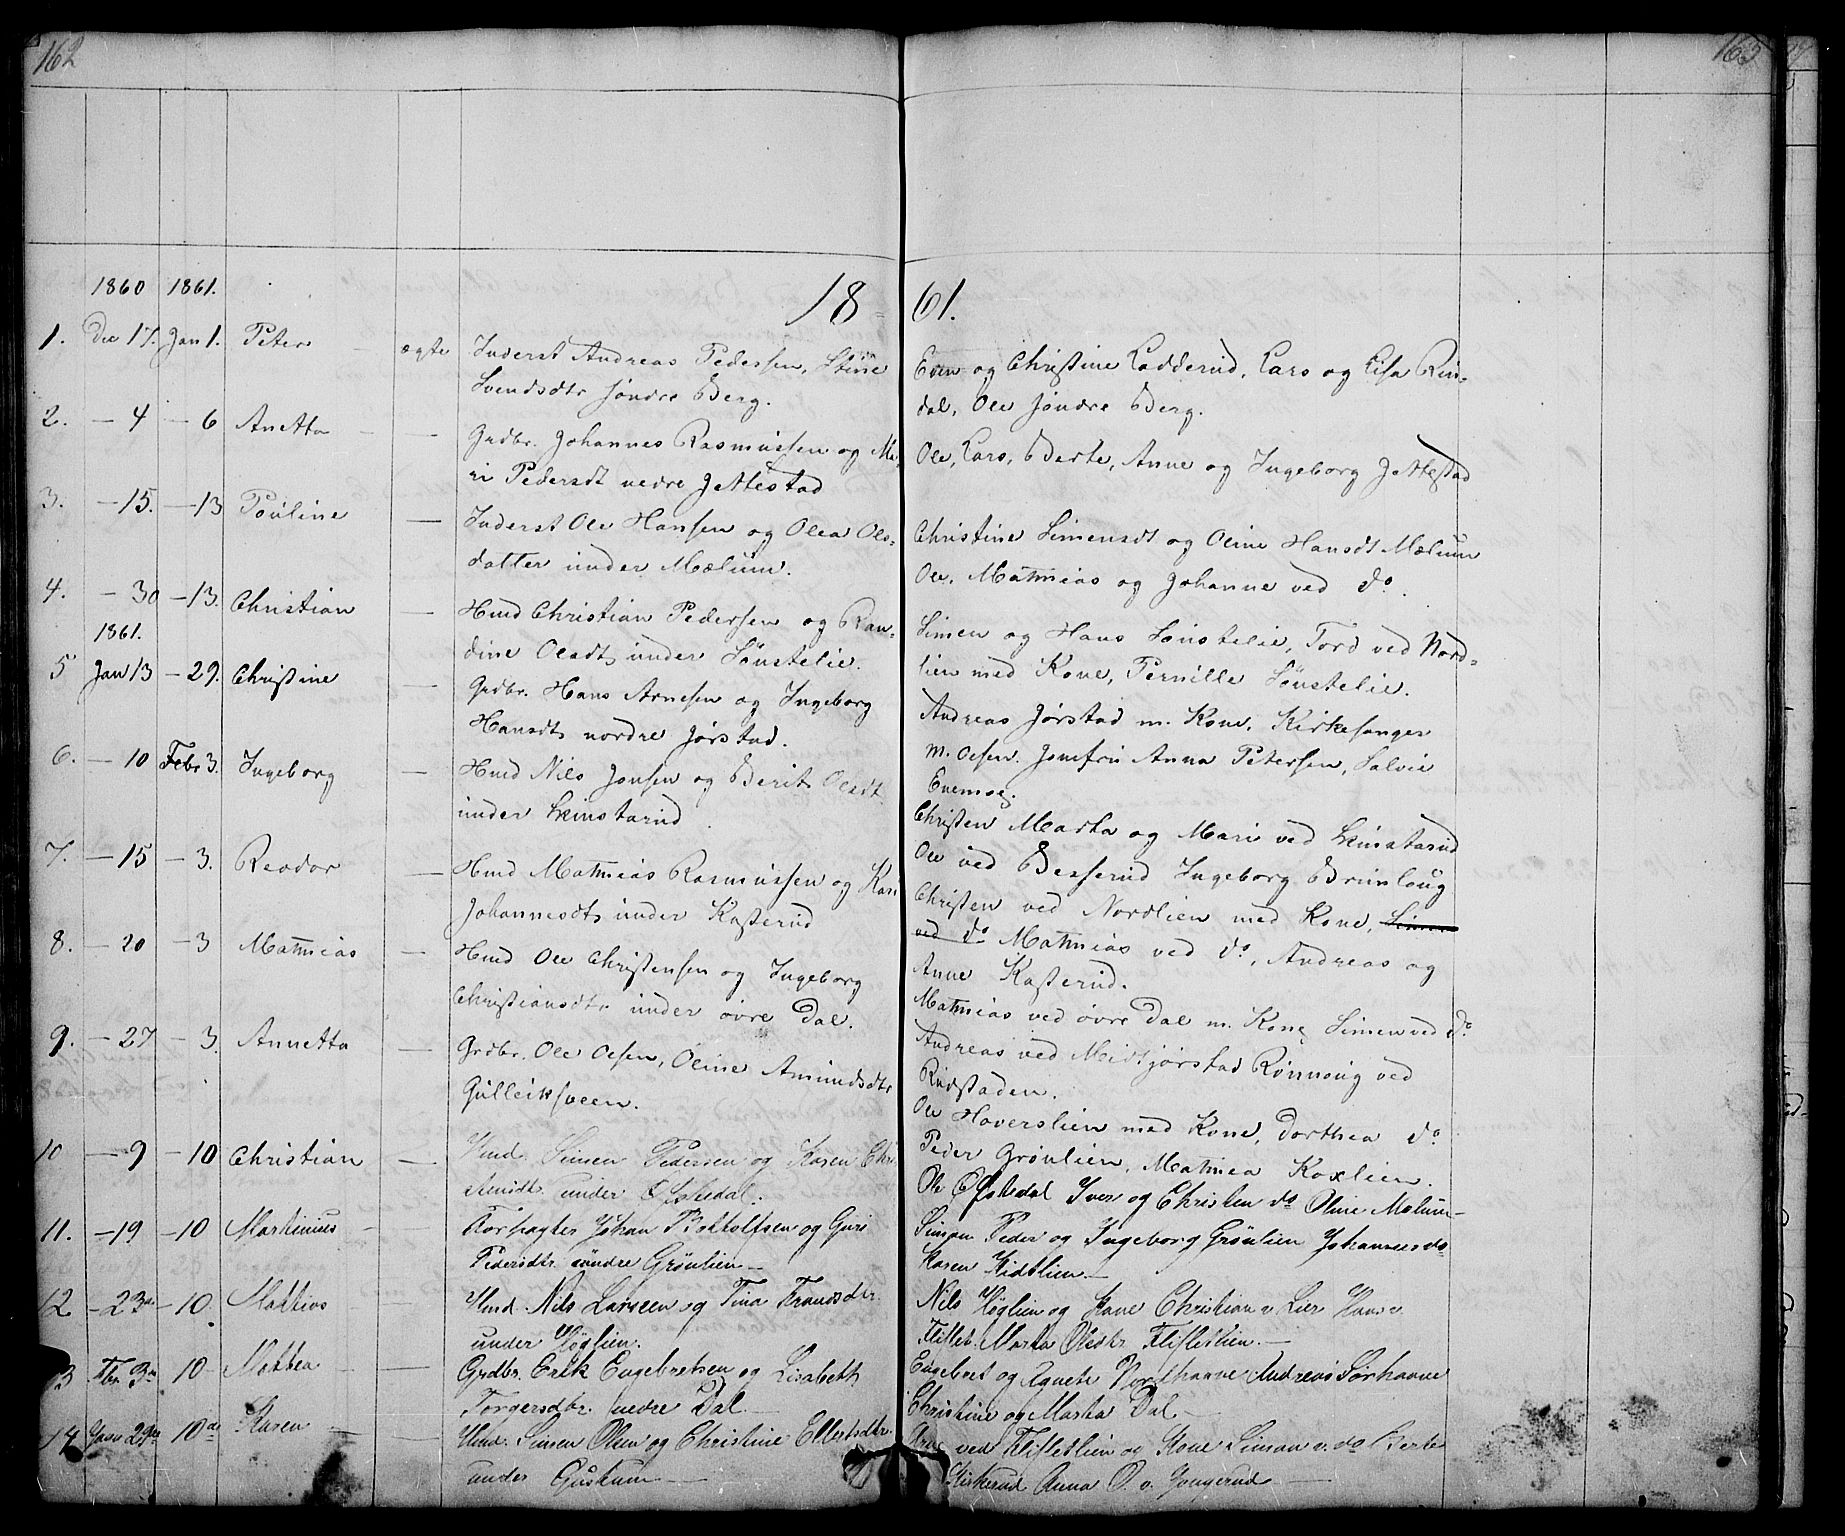 162
163
1860 1861.
18 61.
1. Dec 17. Jan 1. Peter ægte Inderst Andreas Pedersen, Stine
Svendsdtr søndre Berg.
Even og Christine Ladderud, Lars og Lisa Rin-
dal, Ole søndre Berg.
2. - 4 - 6 Anetta - Grdbr. Johannes Rasmussen og Ma-
ri Pedersdt nedre Jettestad
Ole, Lars, Berte, Anne og Ingeborg Jettestad
3. - 15. - 13 Pouline - Inderst Ole Hansen og Olea Ols-
datter under Mælum.
Christine Simensdt og Oline Hansdt Mælum
Ole, Mathias og Johanne ved do.
4. - 30 - 13. Christian - Hmd Christian Pedersen og Ran-
dine Olsdt under Sönstelie.
Simen og Hans Sönstelie, Tord ved Nord-
lien med Kone, Pernille Sönstelie.
1861.
5 Jan 13 - 29. Christine - Grdbr. Hans Arnesen og Ingeborg
Hansdt nordre Jørstad.
Andreas Jørstad m. Kone, Kirkesanger
m. Olsen. Jomfru Anna Petersen,
6. - 10 Febr 3. Ingeborg - Hmd Nils Jonsen og Berit Olsdt
under Skinstarud
Christen Marta og Mari ved Skinstarud
Ole ved Besserud Ingeborg Brunlaug
7. - 15 - 3. Reodor - Hmd Mathias Rasmussen og Kari
Johannesdt under Kasterud
Christen ved Nordlien med Kone, Simen
ved do Mathias ved do, Andreas og
Anne Kasterud.
8. - 20 - 3 Mathias - Hmd Ole Christensen og Ingeborg
Christiansdtr under øvre Dal.
Mathias ved øvre Dal m. Kone Simen ved do
Andreas ved Midtjørstad Rønnoug ved
Rudstaden.
9. - 27 - 3. Annetta - Grdbr. Ole Olsen, Oline Amundsdtr
Gulleiksveen.
Ole Haverslien med Kone, Dorthea do
Peder Grönlien, Mathea
10 - 9 - 10 Christian - Hmd. Simen Pedersen og Karen Chri-
stensdt. under Ofstedal.
Ole Ofstedal Iver og Christen do Oline Mælum
11. - 19 - 10 Martinius - Forpagter Johan Bottolfsen og Guri
Pedersdtr. under Grönlien
Simon Peder og Ingeborg Grönlien Johannes do
Karen Kidtlien
12. - 23de - 10. Mattias Hmd. Nils Larseen og Tina Frandsdtr.
under Høglien.
Nils Høglien og Kone Christian v. Lier Hans v.
Fliflet. Marta Olsdtr Flifletlien.
13 Fbr. 3de 10 - Mattea - Grdbr. Erik Engebretsen og Lisabeth
Torgersdtr. nedre Dal.
Engebret og Agnete Nordhaave Andreas Sørhaave
Christine og Marta Dal.
14 Janu 29de 10de Karen - Hmd. Simen Olsen og Christine Ellertsdtr.
under Gaskum
Arne ved Flifletlien og Kone Simon v. do Berte
Kirkerud Anna O. v. Jongerud